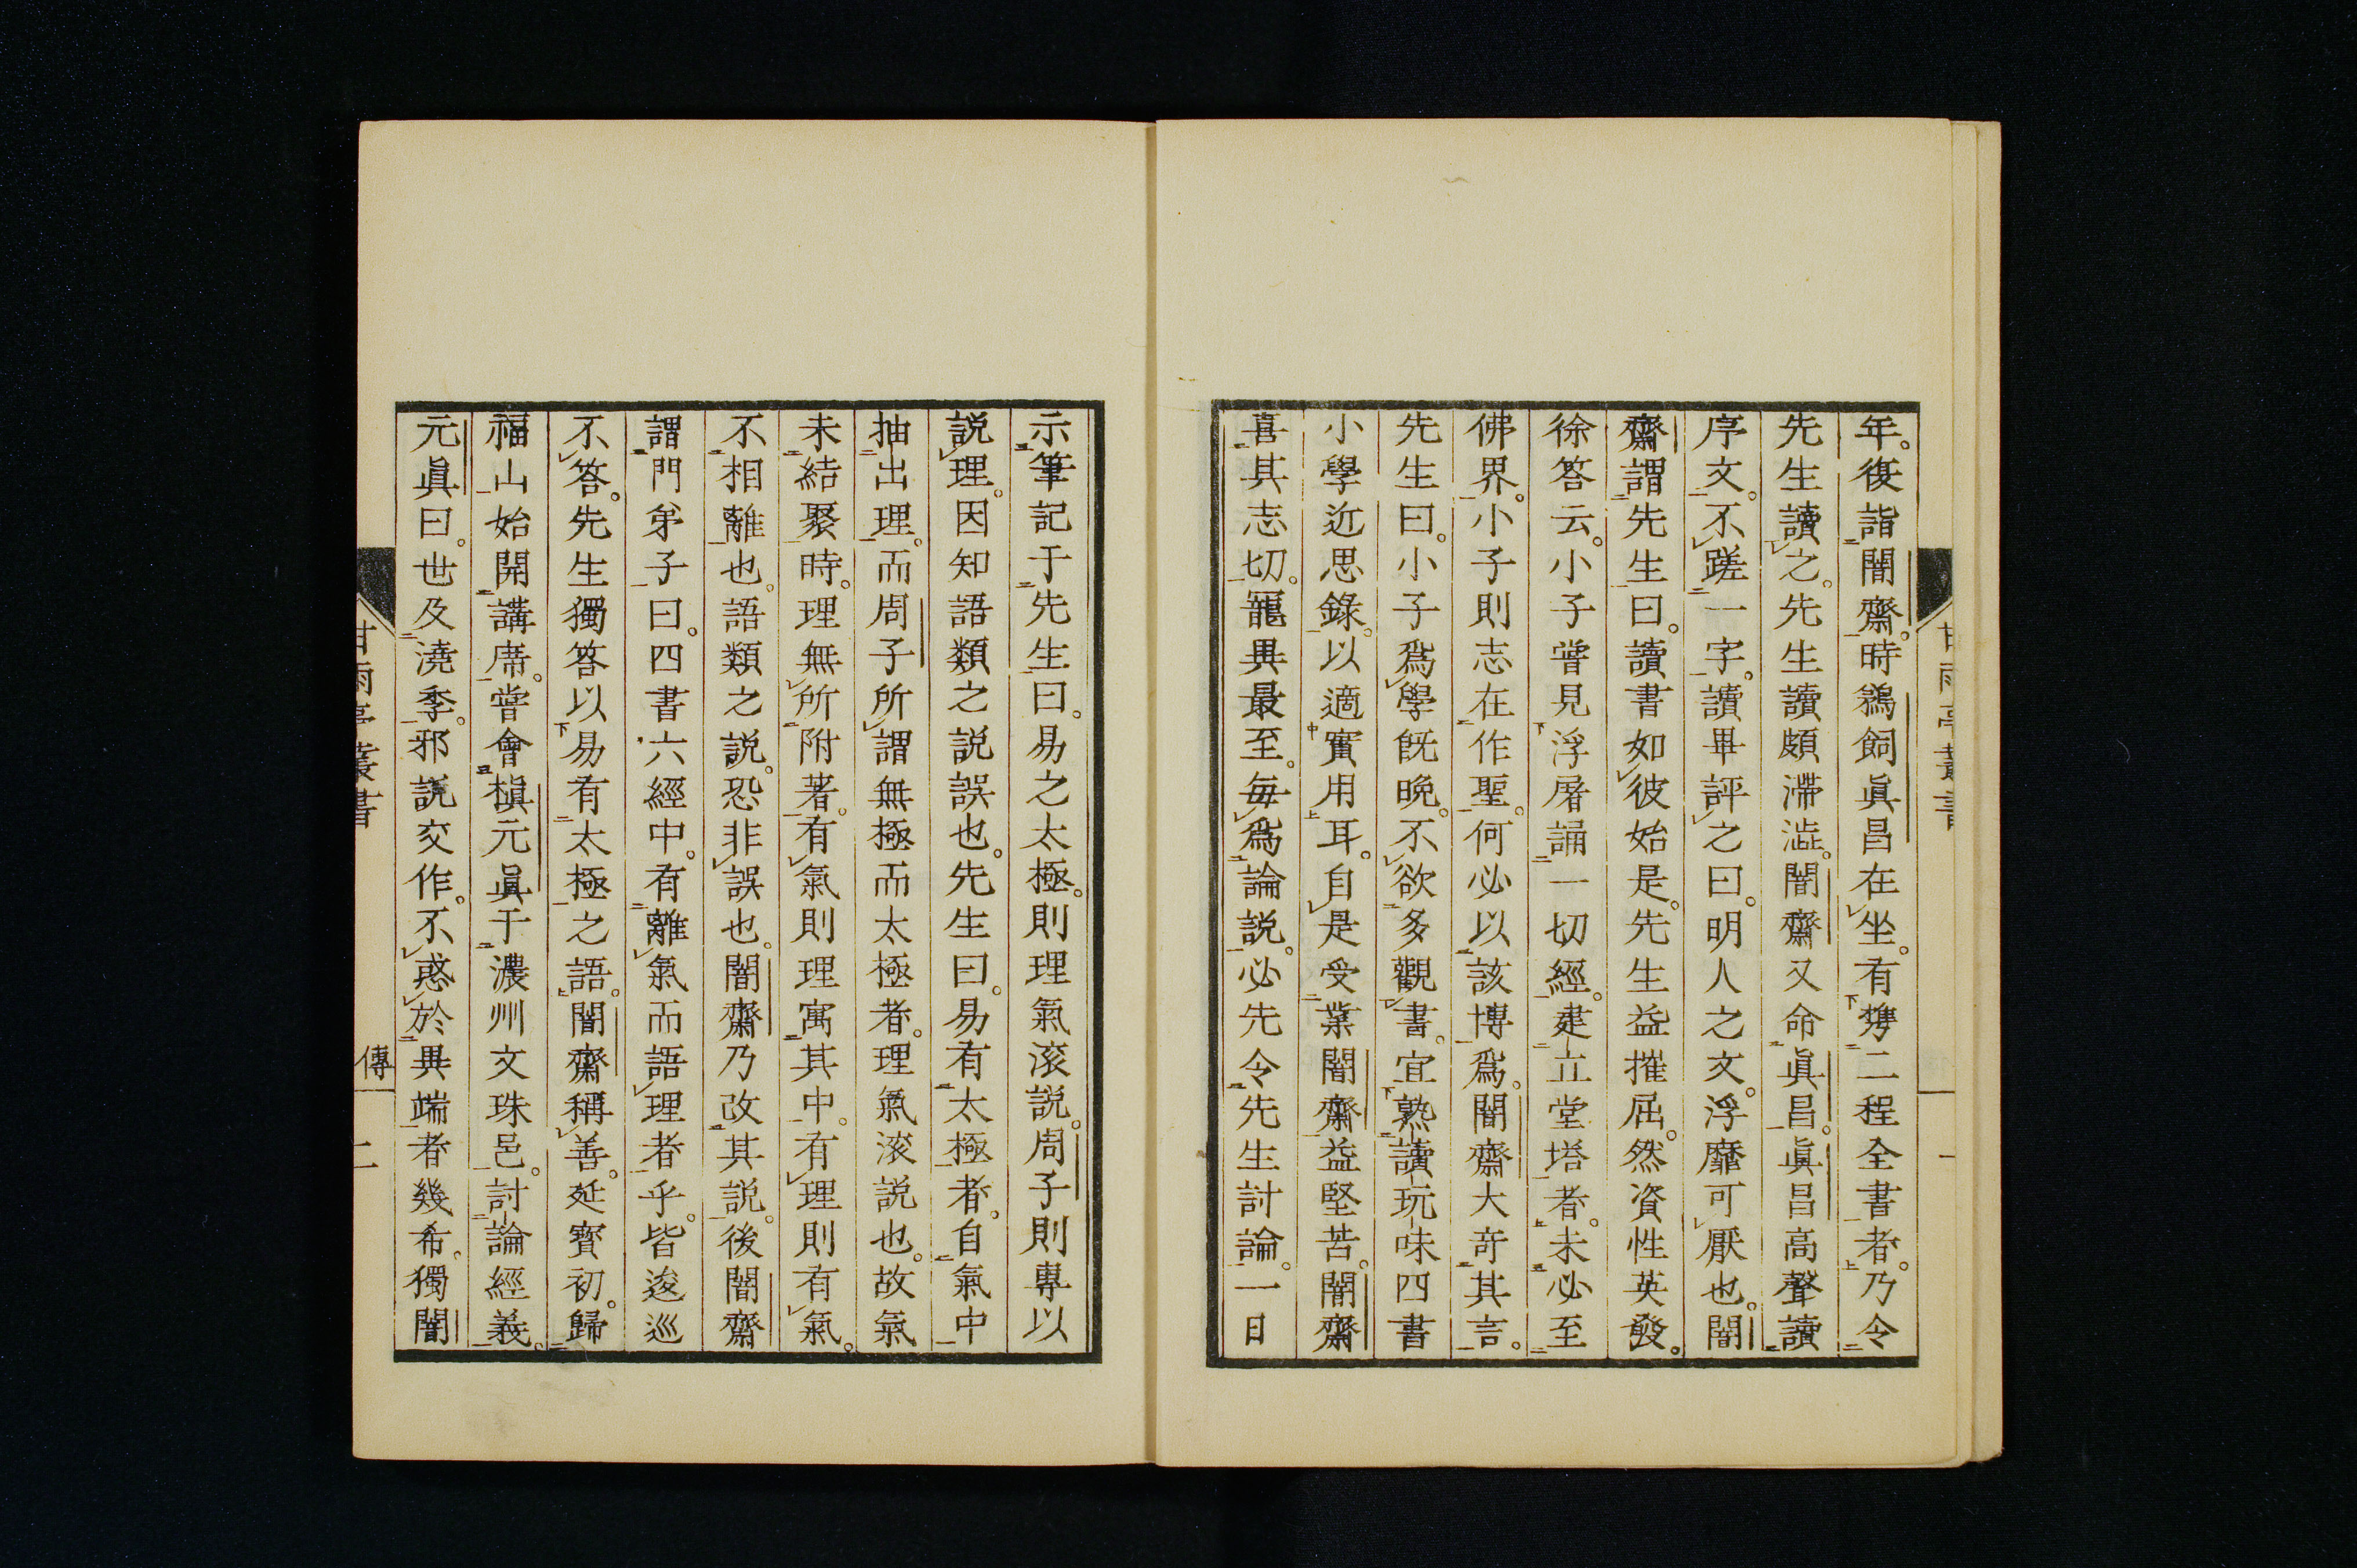 年。復詣闇齋。時鵜飼眞昌在坐。有携二程全書者。乃令
先生讀之。先生讀頗滯澁。闇齋又命眞昌。眞昌高聲讀
序文。不蹉一字。讀畢評之曰。明人之文。浮靡可厭也。闇
齋謂先生曰。讀書如彼始是。先生益摧屈。然資性英發。
徐答云。小子嘗見浮屠誦一切經。建立堂塔者。未必至
佛界。小子則志在作聖。何必以該博爲。闇齋大奇其言。
先生曰。小子爲學旣晩。不欲多觀書。宜熟讀玩味四書
小學近思錄。以適實用耳。自是受業闇齋。益堅苦。闇齋
喜其志切。寵異最至。每爲論説。必先令先生討論。一日
示筆記于先生曰。易之太極。則理氣滚説。周子則專以
説理。因知語類之説誤也。先生曰。易有太極者。自氣中
抽出理。而周子所謂無極而太極者。理氣滚説也。故氣
未結聚時。理無所附著。有氣則理寓其中。有理則有氣。
不相離也。語類之説。恐非誤也。闇齋乃改其説。後闇齋
謂門弟子曰。四書六經中。有離氣而語理者乎。皆逡巡
不答。先生獨答以易有太極之語。闇齋稱善。延寶初。歸
福山始開講席。嘗會槇元眞于濃州文珠邑。討論經義。
元眞曰。世及澆季。邪説交作。不惑於異端者幾希。獨闇
甘雨亭叢書
傳
二